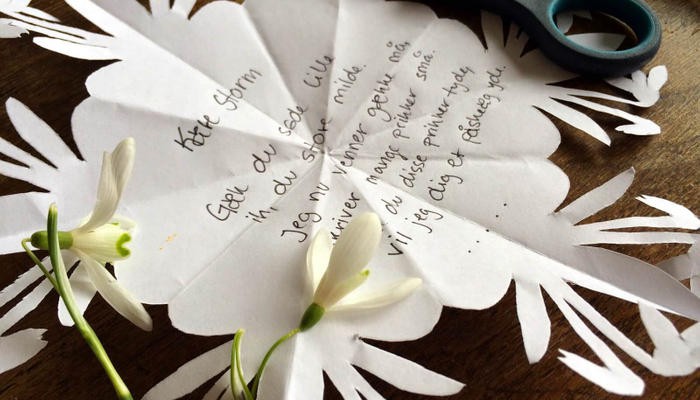 Kære Storm
Gæk du søde lille
ih du store milde.
Jeg nu venner gække må,
skriver mange prikker små.
du disse prikker tyde,
vil jeg dig et påskeæg yde.
. . . . .